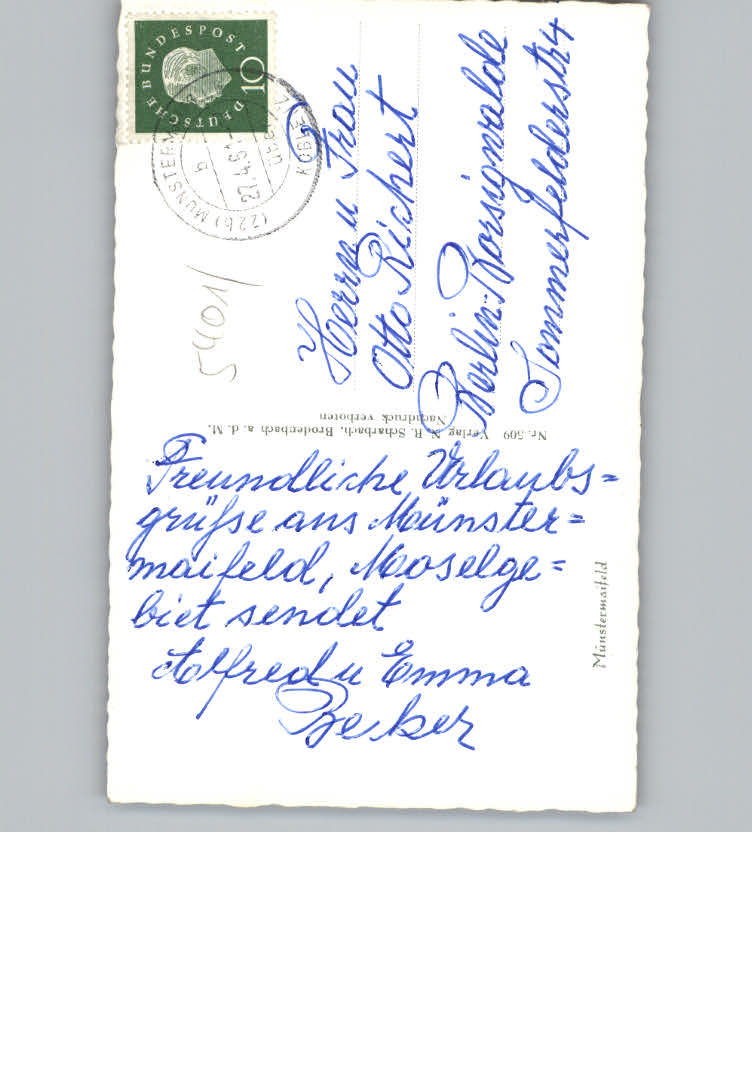 DEUTSCHE BUNDESPOST
10
(22b) MÜNSTERM
27.4.61
b
5401/
Herrn u Frau
Otto Richert
Berlin-Borsigwalde
Sommerfelderstr 4
Nr. 509 Verlag N. R. Scharbach, Brodenbach a. d. M.
Nachdruck verboten
Freundliche Urlaubs=
grüße aus Münster=
maifeld, Mooselge=
biet sendet
Alfred u Emma
Becker
Münstermaifeld